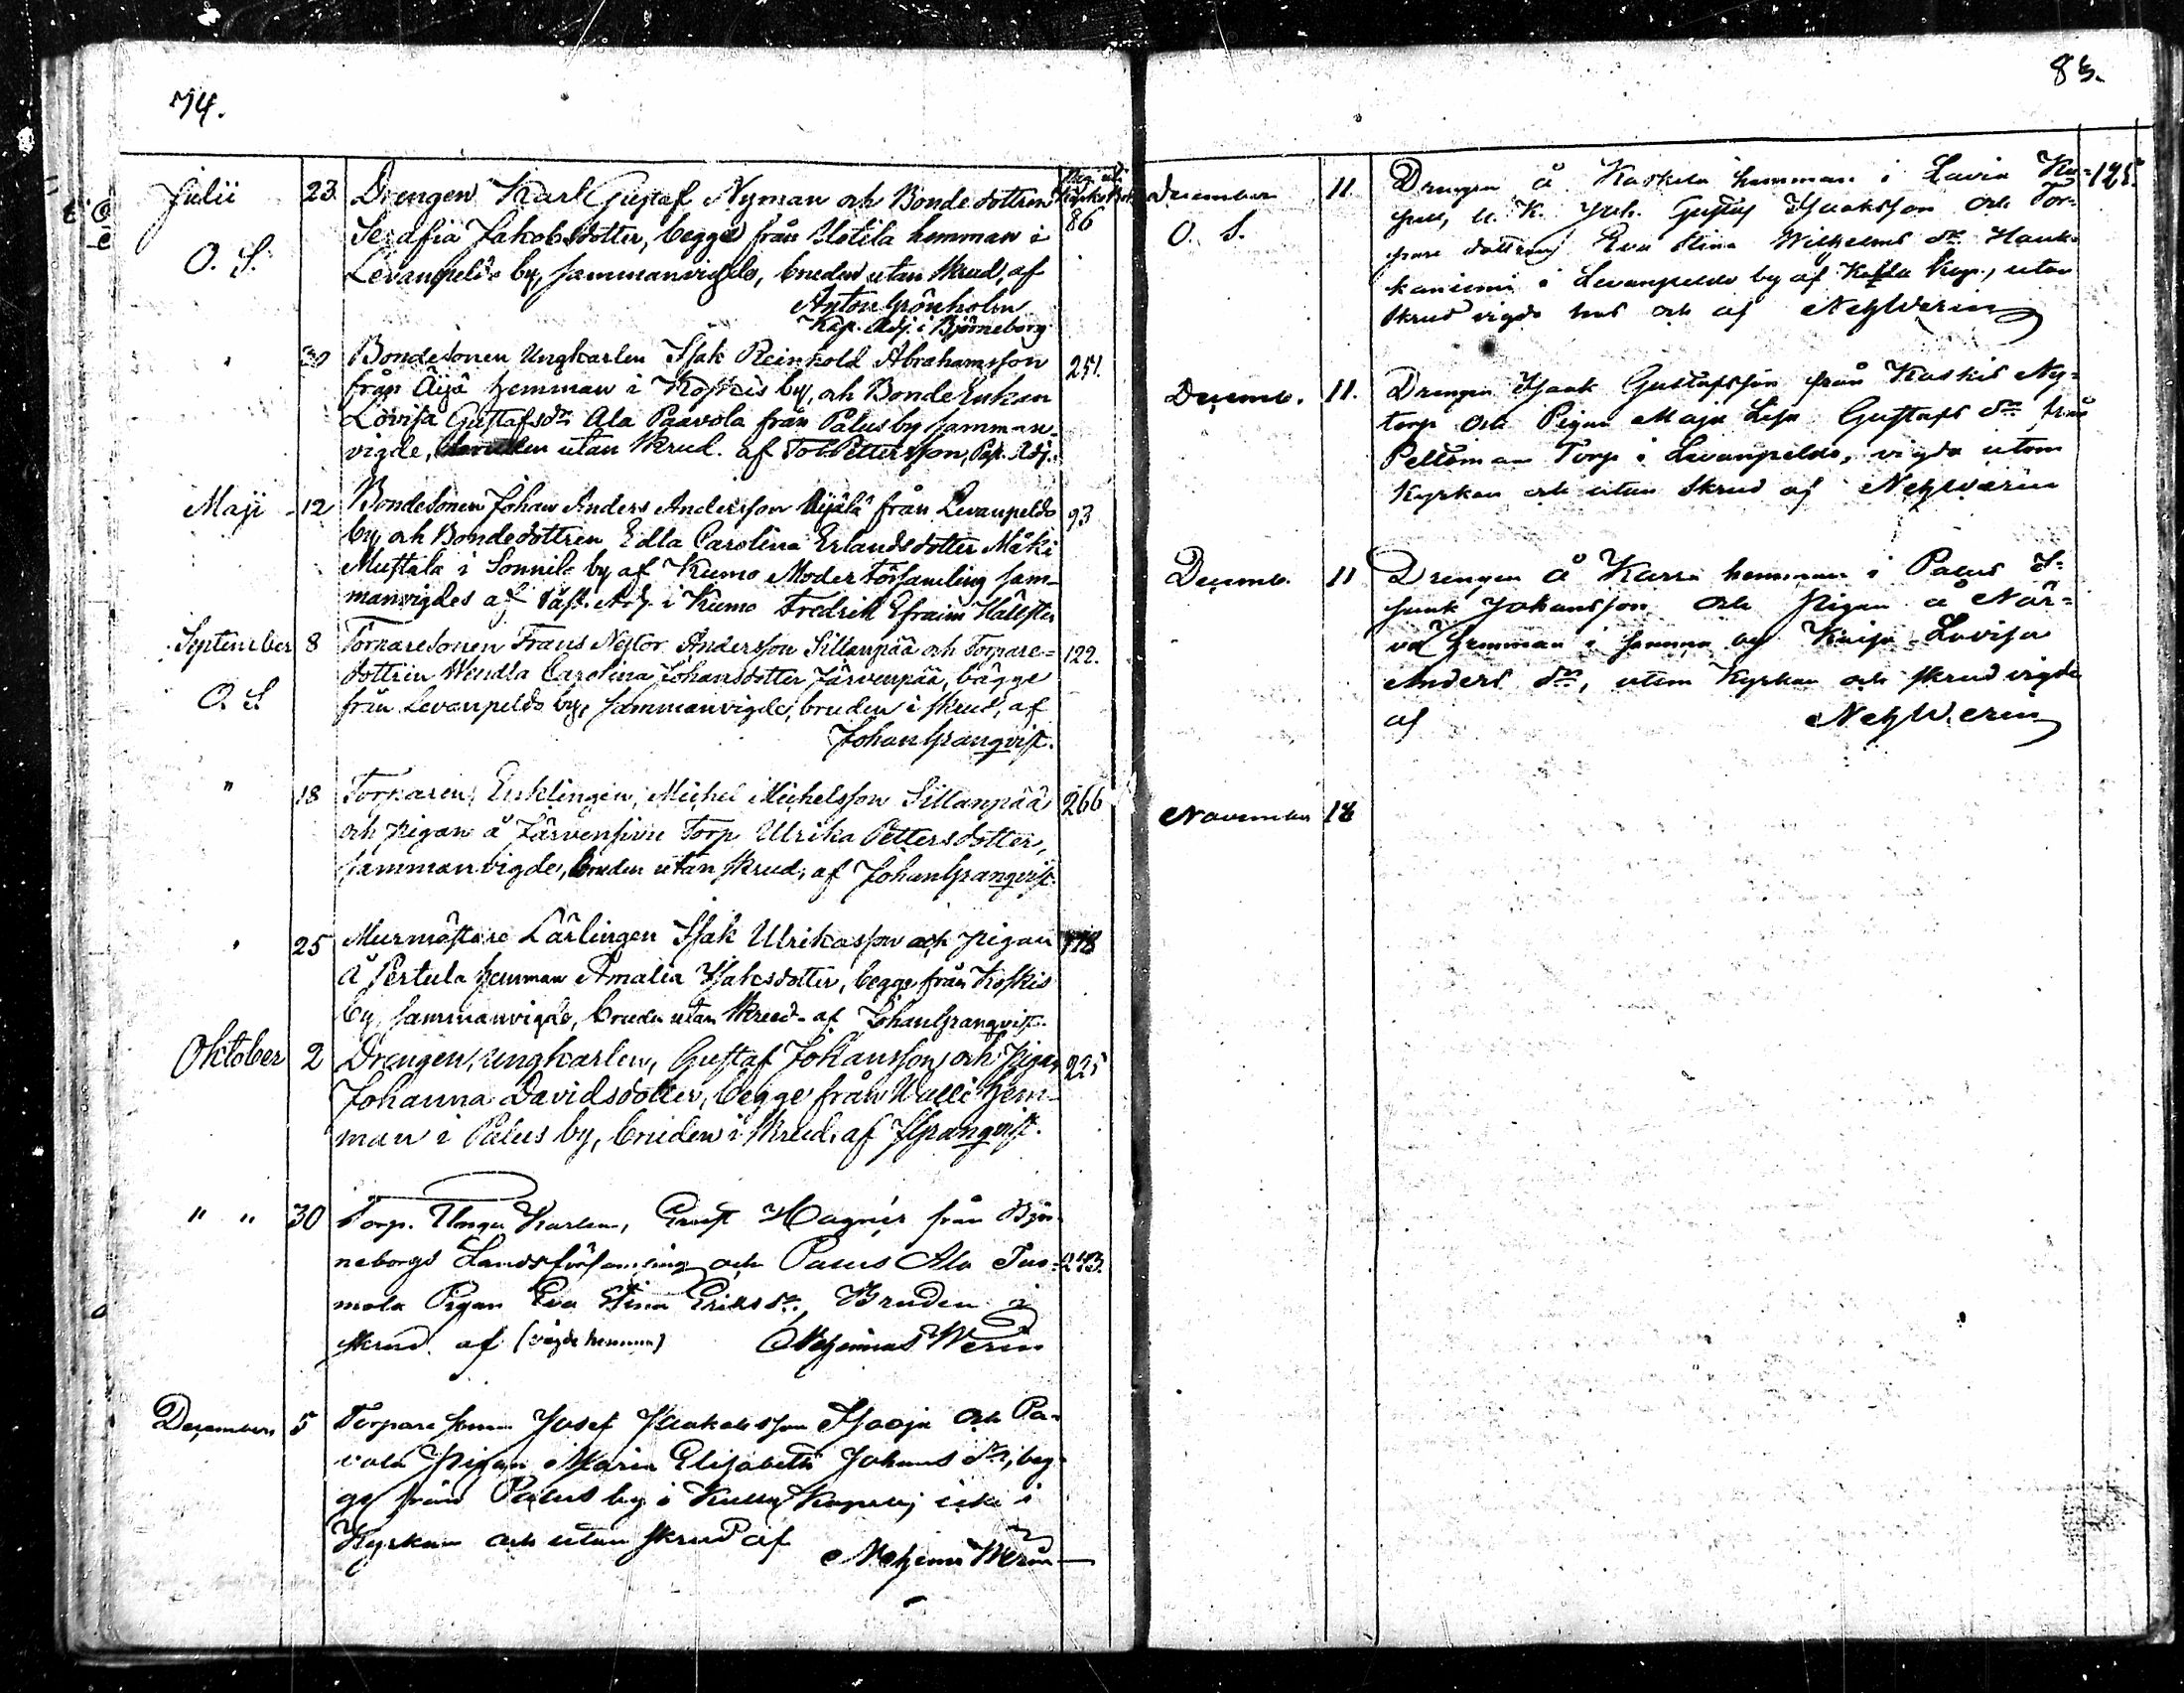 74.
Julii 23 Drengen Karl Gustaf Nyman och Bondedottren
Serafia Jakobsdotter, begge från Ylötila hemman i 86
O. S. Levanpeldo by, sammanvigde, bruden utan skrud, af
Anton Grönholm
Kap. Adj. i Björneborg
" 30 Bondesonen Ungkarlen Isak Reinhold Abrahamsson 251.
från Äijä hemman i Koskis by, och Bonde Enkan
Lovisa Gustafsdr Ala Paavola från Palus by samman-
vigde, bruden utan skrud. af Pettersson, Adj.
Maji 12 Bondesonen Johan Anders Andersson Äijälä från Levanpeldo 93
by och Bondedottren Edla Carolina Erlandsdotter Mäki
Mustala i Sonnila by af Kumo Moder Församling sam-
manvigdes af Adj. i Kumo Fredrik Efraim Hällfors
September 8 Torparesonen Frans Nestor Andersson Sillanpää och Torpare- 122.
dottren Wendla Carolina Johansdotter Järvenpää, bägge
O. S. från Levanpeldo by, sammanvigde, bruden i skrud, af
Johan Granqvist.
" 18 Torparen, Enklingen, Michel Michelsson Sillanpää 266
och pigan å Torp Ulrika Pettersdotter,
sammanvigde, bruden utan skrud, af Johan Granqvist.
" 25 Murmästare Lärlingen Isak Ulrikasson och pigan 178
å Pertula hemman Amalia Isaksdotter, begge från Koskis
by sammanvigde, bruden utan skrud. af Johan Granqvist.
Oktober 2 Drengen, ungkarlen, Gustaf Johansson och Pigan 225
Johanna Davidsdotter, begge från Walli hem-
man i Palus by, bruden i skrud. af JGranqvist.
" " 30 Torp. Unga Karlen, Ernst Hagnér från Björ-
neborgs Landsförsamling och Palus Ala Tuo- 243.
mola Pigan Eva Stina Eriksdr, Bruden i
skrud. af (vigde hemma) Nehemias Werin
December 5 Torpare sonen Josef Jaakobsson Isooja och Pa-
vola Pigan Maria Elisabeth Johansdr, beg-
ge från Palus by i Kulla Kapell; icke i
Kyrkan och utan skrud af Nehemi Werin
83.
December 11. Drengen å Kaskela hemman i Lavia Ka- 125.
pell, U. K. Joh. Gustaf Isaaksson och Tor-
O. S. pare dottren Eva Stina Wilhelms dr Hauk-
kaniemi i Levanpeldo by af Kulla Kap., utan
skrud vigde hos och af NehWerin
Decemb. 11. Drengen Isaak Gustafsson från Koskis Ny-
torp och Pigan Maja Lisa Gustafs dr från
Peltoman Torp i Levanpeldo, vigde utom
Kyrkan och utan skrud af NehWerin
Decemb. 11 Drengen å Karra hemman i Palus I-
saak Johansson och Pigan å När-
vä hemman i samma by Kaisa Lovisa
Anders dr, utom Kyrkan och skrud vigde
af NehWerin
November 18